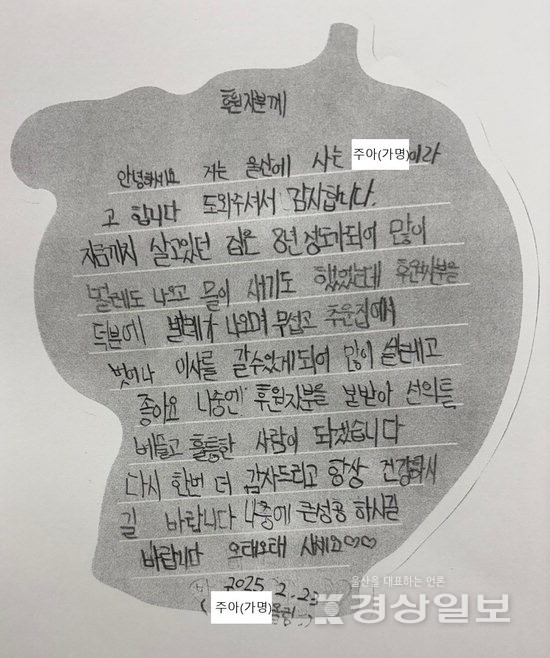 후원자분께
안녕하세요 저는 울산에 사는 주아(가명)이라
고 합니다 도와주셔서 감사합니다.
지금까지 살고있던 집은 8년 정도가되어 많이
벌레도 나오고 물이 새기도 했었는데 후원자분을
덕분에 벌레가 나오며 무섭고 추운집에서
벗어나 이사를 갈수있게되어 많이 설레고
좋아요 나중에 후원자분을 본받아 선의를
베들고 훌륭한 사람이 되겠습니다
다시 한번 더 감사드리고 항상 건강하시
길 바랍니다 나중에 큰성공 하시길
바랍니다 오래오래 사세요♡♡
2025 2.23
주아(가명) 올림
울산을 대표하는 언론
경상일보